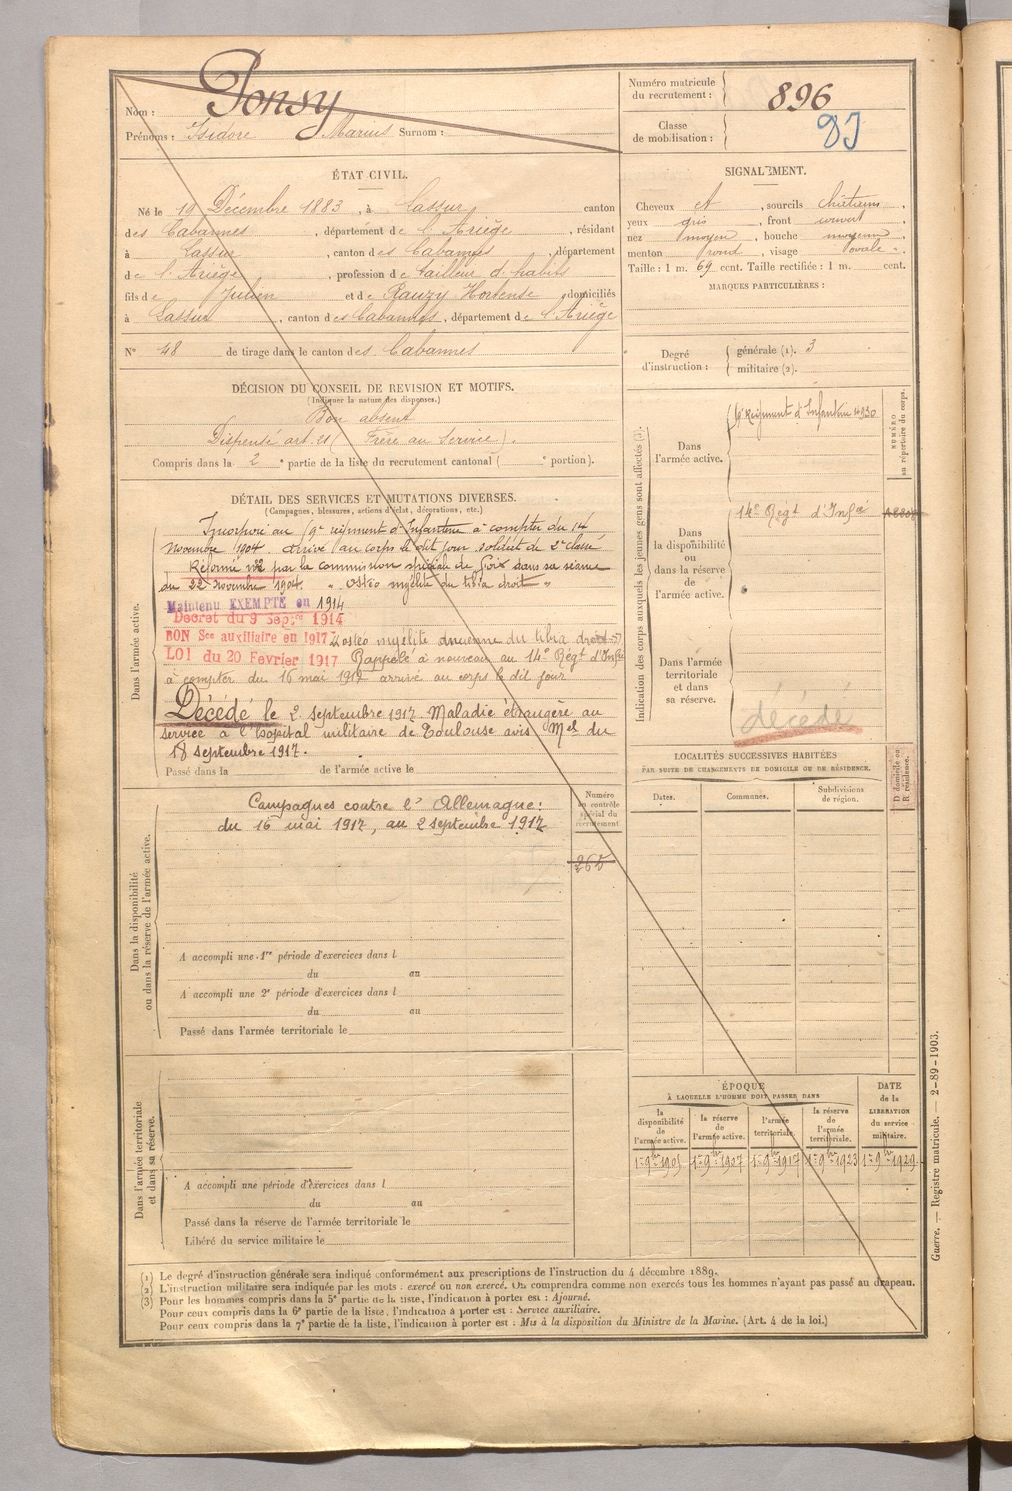 Nom : Ponsy
Prénoms : Isidore Marius Surnom :
Numéro matricule du recrutement : 896
Classe de mobilisation : 03
ÉTAT CIVIL.
Né le 19 Décembre 1883, à Lassur canton
des Cabannes, département de l'Ariège, résidant
à Lassur, canton des Cabannes, département
de l'Ariège, profession de tailleur d'habits
fils de Julien et de Rauzy Hortense, domiciliés
à Lassur, canton des Cabannes, département de l'Ariège
N° 48 de tirage dans le canton des Cabannes
SIGNALEMENT.
Cheveux et, sourcils châtains,
yeux gris, front couvert,
nez moyen, bouche moyenne,
menton rond, visage ovale.
Taille : 1 m. 69 cent. Taille rectifiée : 1 m. cent.
MARQUES PARTICULIÈRES :
Degré d'instruction : générale (1). 3
militaire (2).
DÉCISION DU CONSEIL DE REVISION ET MOTIFS.
(Indiquer la nature des dispenses.)
Bon absent
Dispensé art. 21 (Frère au Service).
Compris dans la 2e partie de la liste du recrutement cantonal ( e portion).
DÉTAIL DES SERVICES ET MUTATIONS DIVERSES.
(Campagnes, blessures, actions d'éclat, décorations, etc.)
Dans l'armée active.
Incorporé au 9e régiment d'Infanterie à compter du 14
novembre 1904. arrivé au corps le dit jour soldat de 2e classe
Réformé n°2 par la commission spéciale de Foix dans sa séance
du 22 novembre 1904. " Ostéo myélite du tibia droit "
Maintenu EXEMPTÉ en 1914
Décret du 9 Septre 1914
BON Sce auxiliaire en 1917 ostéo myélite ancienne du tibia droit
LOI du 20 Février 1917 Rappelé à nouveau au 14e Régt d'Infie
à compter du 16 mai 1917 arrivé au corps le dit jour
Décédé le 2 septembre 1917 Maladie étrangère au
service à l'hôpital militaire de Toulouse avis Mel du
18 septembre 1917.
Passé dans la de l'armée active le
Indication des corps auxquels les jeunes gens sont affectés (3).
NUMÉRO au répertoire du corps.
Dans l'armée active.
9e Régiment d'Infanterie
Dans la disponibilité ou dans la réserve de l'armée active.
14e Régt d'Infie
Dans l'armée territoriale et dans sa réserve.
décédé
Dans la disponibilité ou dans la réserve de l'armée active.
Campagnes contre l'Allemagne :
du 16 mai 1917, au 2 septembre 1917
Numéro au contrôle spécial du recrutement
265
A accompli une 1re période d'exercices dans l
du au
A accompli une 2e période d'exercices dans l
du au
Passé dans l'armée territoriale le
LOCALITÉS SUCCESSIVES HABITÉES
PAR SUITE DE CHANGEMENTS DE DOMICILE OU DE RÉSIDENCE.
Dates. Communes. Subdivisions de région. D. domicile ou R. résidence.
Dans l'armée territoriale et dans sa réserve.
A accompli une période d'exercices dans l
du au
Passé dans la réserve de l'armée territoriale le
Libéré du service militaire le
ÉPOQUE
À LAQUELLE L'HOMME DOIT PASSER DANS
la disponibilité de l'armée active. la réserve de l'armée active. l'armée territoriale. la réserve de l'armée territoriale. DATE de la LIBÉRATION du service militaire.
1er 9bre 1905 1er 9bre 1907 1er 9bre 1917 1er 9bre 1923 1er 9bre 1929
(1) Le degré d'instruction générale sera indiqué conformément aux prescriptions de l'instruction du 4 décembre 1889.
(2) L'instruction militaire sera indiquée par les mots : exercé ou non exercé. On comprendra comme non exercés tous les hommes n'ayant pas passé au drapeau.
(3) Pour les hommes compris dans la 5e partie de la liste, l'indication à porter est : Ajourné.
Pour ceux compris dans la 6e partie de la liste, l'indication à porter est : Service auxiliaire.
Pour ceux compris dans la 7e partie de la liste, l'indication à porter est : Mis à la disposition du Ministre de la Marine. (Art. 4 de la loi.)
Guerre. — Registre matricule. — 2-89-1903.